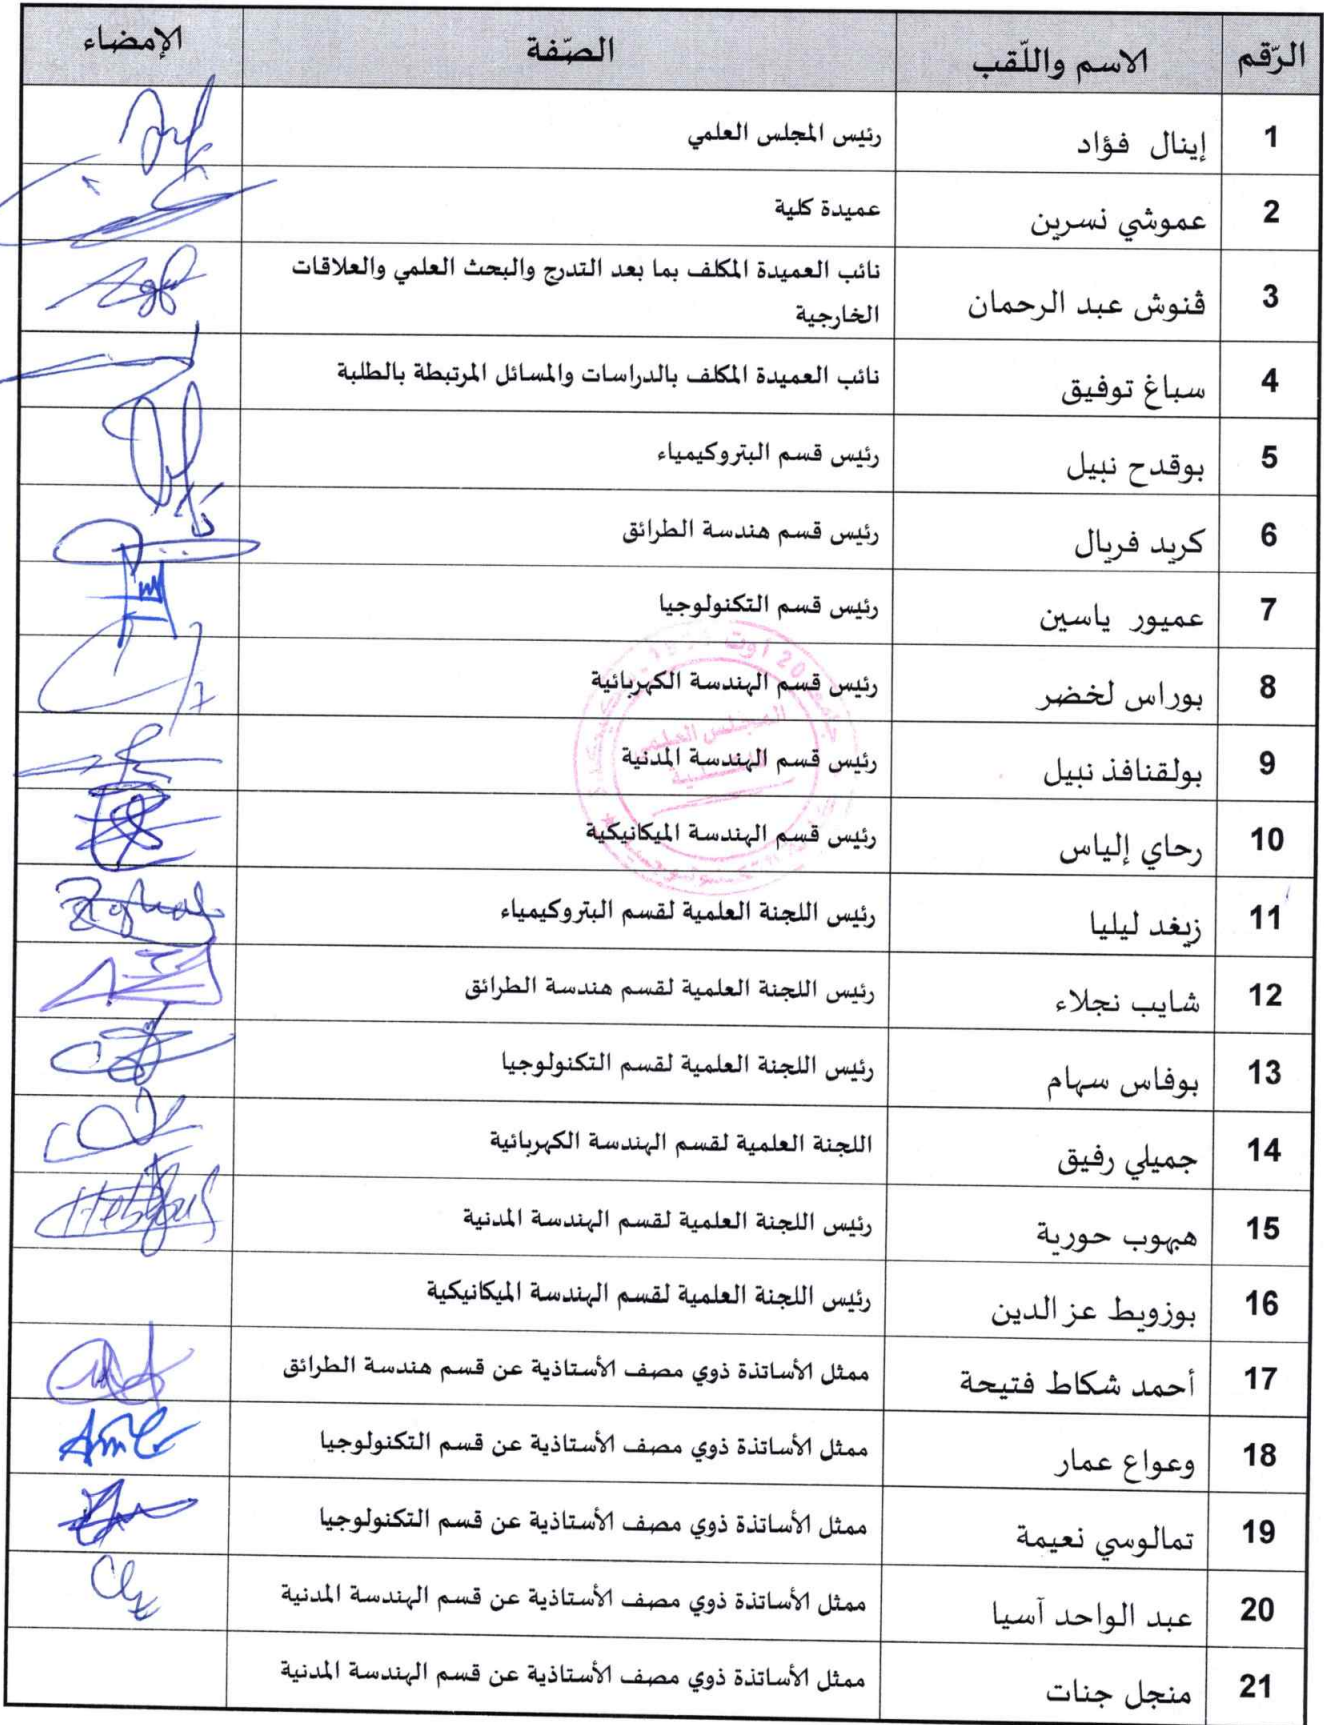 الرّقم الاسم واللّقب الصّفة الإمضاء
1 إينال فؤاد رئيس المجلس العلمي
2 عموشي نسرين عميدة كلية
3 ڤنوش عبد الرحمان نائب العميدة المكلف بما بعد التدرج والبحث العلمي والعلاقات
الخارجية
4 سباغ توفيق نائب العميدة المكلف بالدراسات والمسائل المرتبطة بالطلبة
5 بوقدح نبيل رئيس قسم البتروكيمياء
6 كريد فريال رئيس قسم هندسة الطرائق
7 عميور ياسين رئيس قسم التكنولوجيا
8 بوراس لخضر رئيس قسم الهندسة الكهربائية
9 بولقنافذ نبيل رئيس قسم الهندسة المدنية
10 رحاي إلياس رئيس قسم الهندسة الميكانيكية
11 زيغد ليليا رئيس اللجنة العلمية لقسم البتروكيمياء
12 شايب نجلاء رئيس اللجنة العلمية لقسم هندسة الطرائق
13 بوفاس سهام رئيس اللجنة العلمية لقسم التكنولوجيا
14 جميلي رفيق اللجنة العلمية لقسم الهندسة الكهربائية
15 هبهوب حورية رئيس اللجنة العلمية لقسم الهندسة المدنية
16 بوزويط عز الدين رئيس اللجنة العلمية لقسم الهندسة الميكانيكية
17 أحمد شكاط فتيحة ممثل الأساتذة ذوي مصف الأستاذية عن قسم هندسة الطرائق
18 وعواع عمار ممثل الأساتذة ذوي مصف الأستاذية عن قسم التكنولوجيا
19 تمالوسي نعيمة ممثل الأساتذة ذوي مصف الأستاذية عن قسم التكنولوجيا
20 عبد الواحد آسيا ممثل الأساتذة ذوي مصف الأستاذية عن قسم الهندسة المدنية
21 منجل جنات ممثل الأساتذة ذوي مصف الأستاذية عن قسم الهندسة المدنية
المجلس العلمي